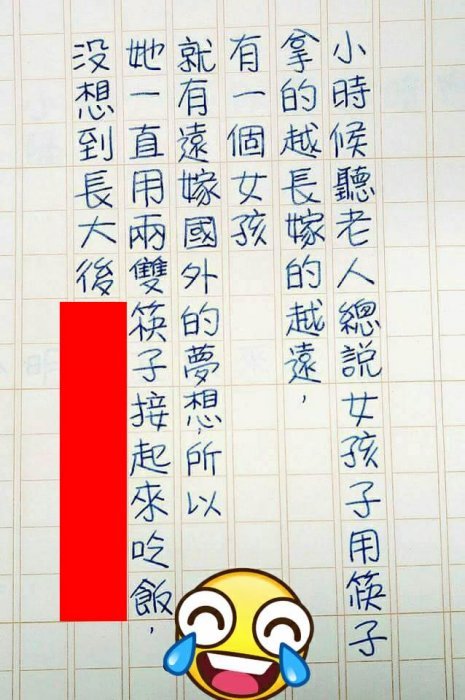 小時候聽老人總說女孩子用筷子
拿的越長嫁的越遠，
有一個女孩
就有遠嫁國外的夢想，所以
她一直用兩雙筷子接起來吃飯，
没想到長大後